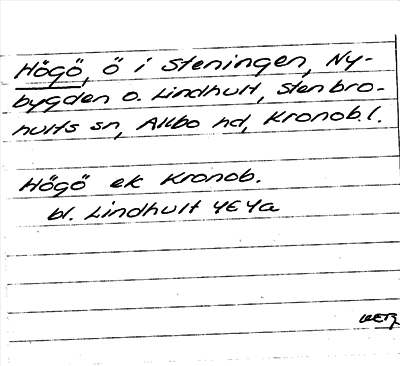 Högö, ö i Steningen, Ny-
bygden o. Lindhult, Stenbro-
hults sn, Allbo hd, Kronob. l.
Högö ek Kronob.
bl. Lindhult 4E4a